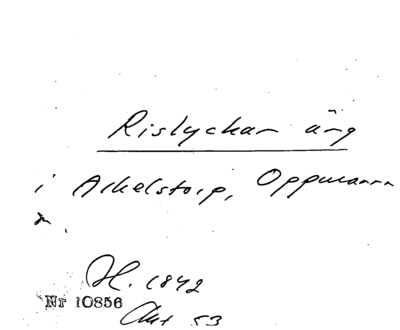 Rislyckan äng
i Arkelstorp, Oppmanna
n.
H. 1842
Nr 10856
Akt 53